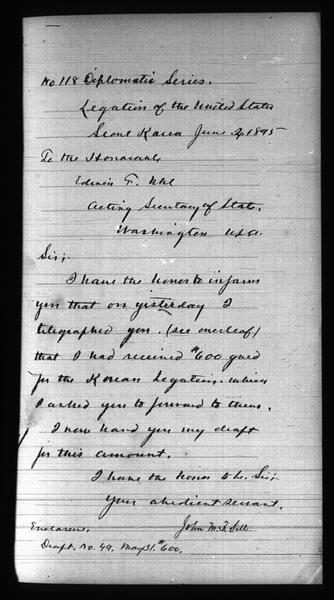 No 118 Diplomatic Series.
Legation of the United States
Seoul Korea June 2, 1895
To the Honorable
Edwin F. Uhl
Acting Secretary of State,
Washington U.S.A.
Sir;
I have the honor to inform
you that on yesterday I
telegraphed you. (see overleaf)
that I had received $600 gold
for the Korean Legation. which
I asked you to forward to them.
I now hand you my draft
for this amount.
I have the honor to be, Sir;
Your obedient servant.
John M. B. Sill
Enclosure,
Draft. No. 49. May 31. $600.